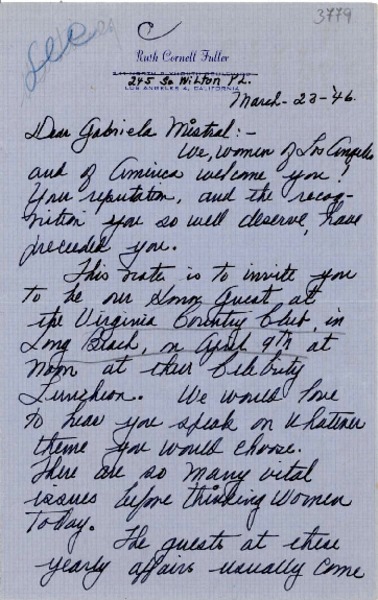 3779
Ruth Cornell Fuller
245 So Wilton Pl.
LOS ANGELES 4, CALIFORNIA
March-23-'46.
Dear Gabriela Mistral:-
We, women of Los Angeles
and of America welcome you!
Your reputation, and the recog-
nition you so well deserve, have
preceeded you.
This note is to invite you
to be our Honor Guest at
the Virginia Country Club, in
Long Beach, on April 9th at
noon at their Celebrity
Luncheon. We would love
to hear you speak on whatever
theme you would choose.
There are so many vital
issues before thinking women
today.
The guests at these
yearly affairs usually come